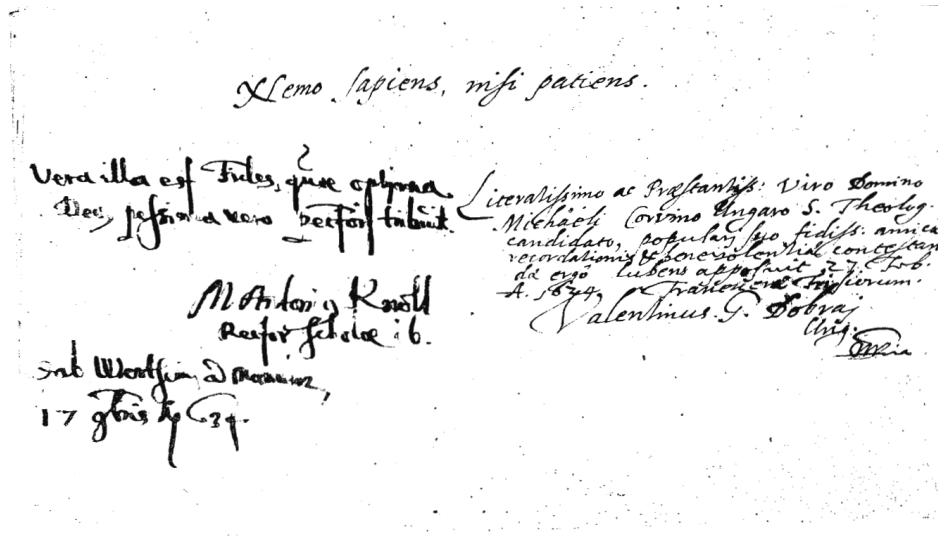 Nemo sapiens, nisi patiens.
Vera illa est Fides, quae optima
Deo, pessima vero pectori tribuit.
M Antoni9 Knoll
Rector scholae ib.
Wertheim ad
17 9bris 634.
Literatissimo ac Præstantiss: Viro Domino
Michaëli Ungaro S. Theolog.
candidato, populari suo fidiss: amicæ
recordationis & benevolentiæ contestan
dæ ergò lubens apposuit 27 Feb.
A. 1634, Franekeræ Frisiorum.
Valentinus. G. Dobraj
Ung.